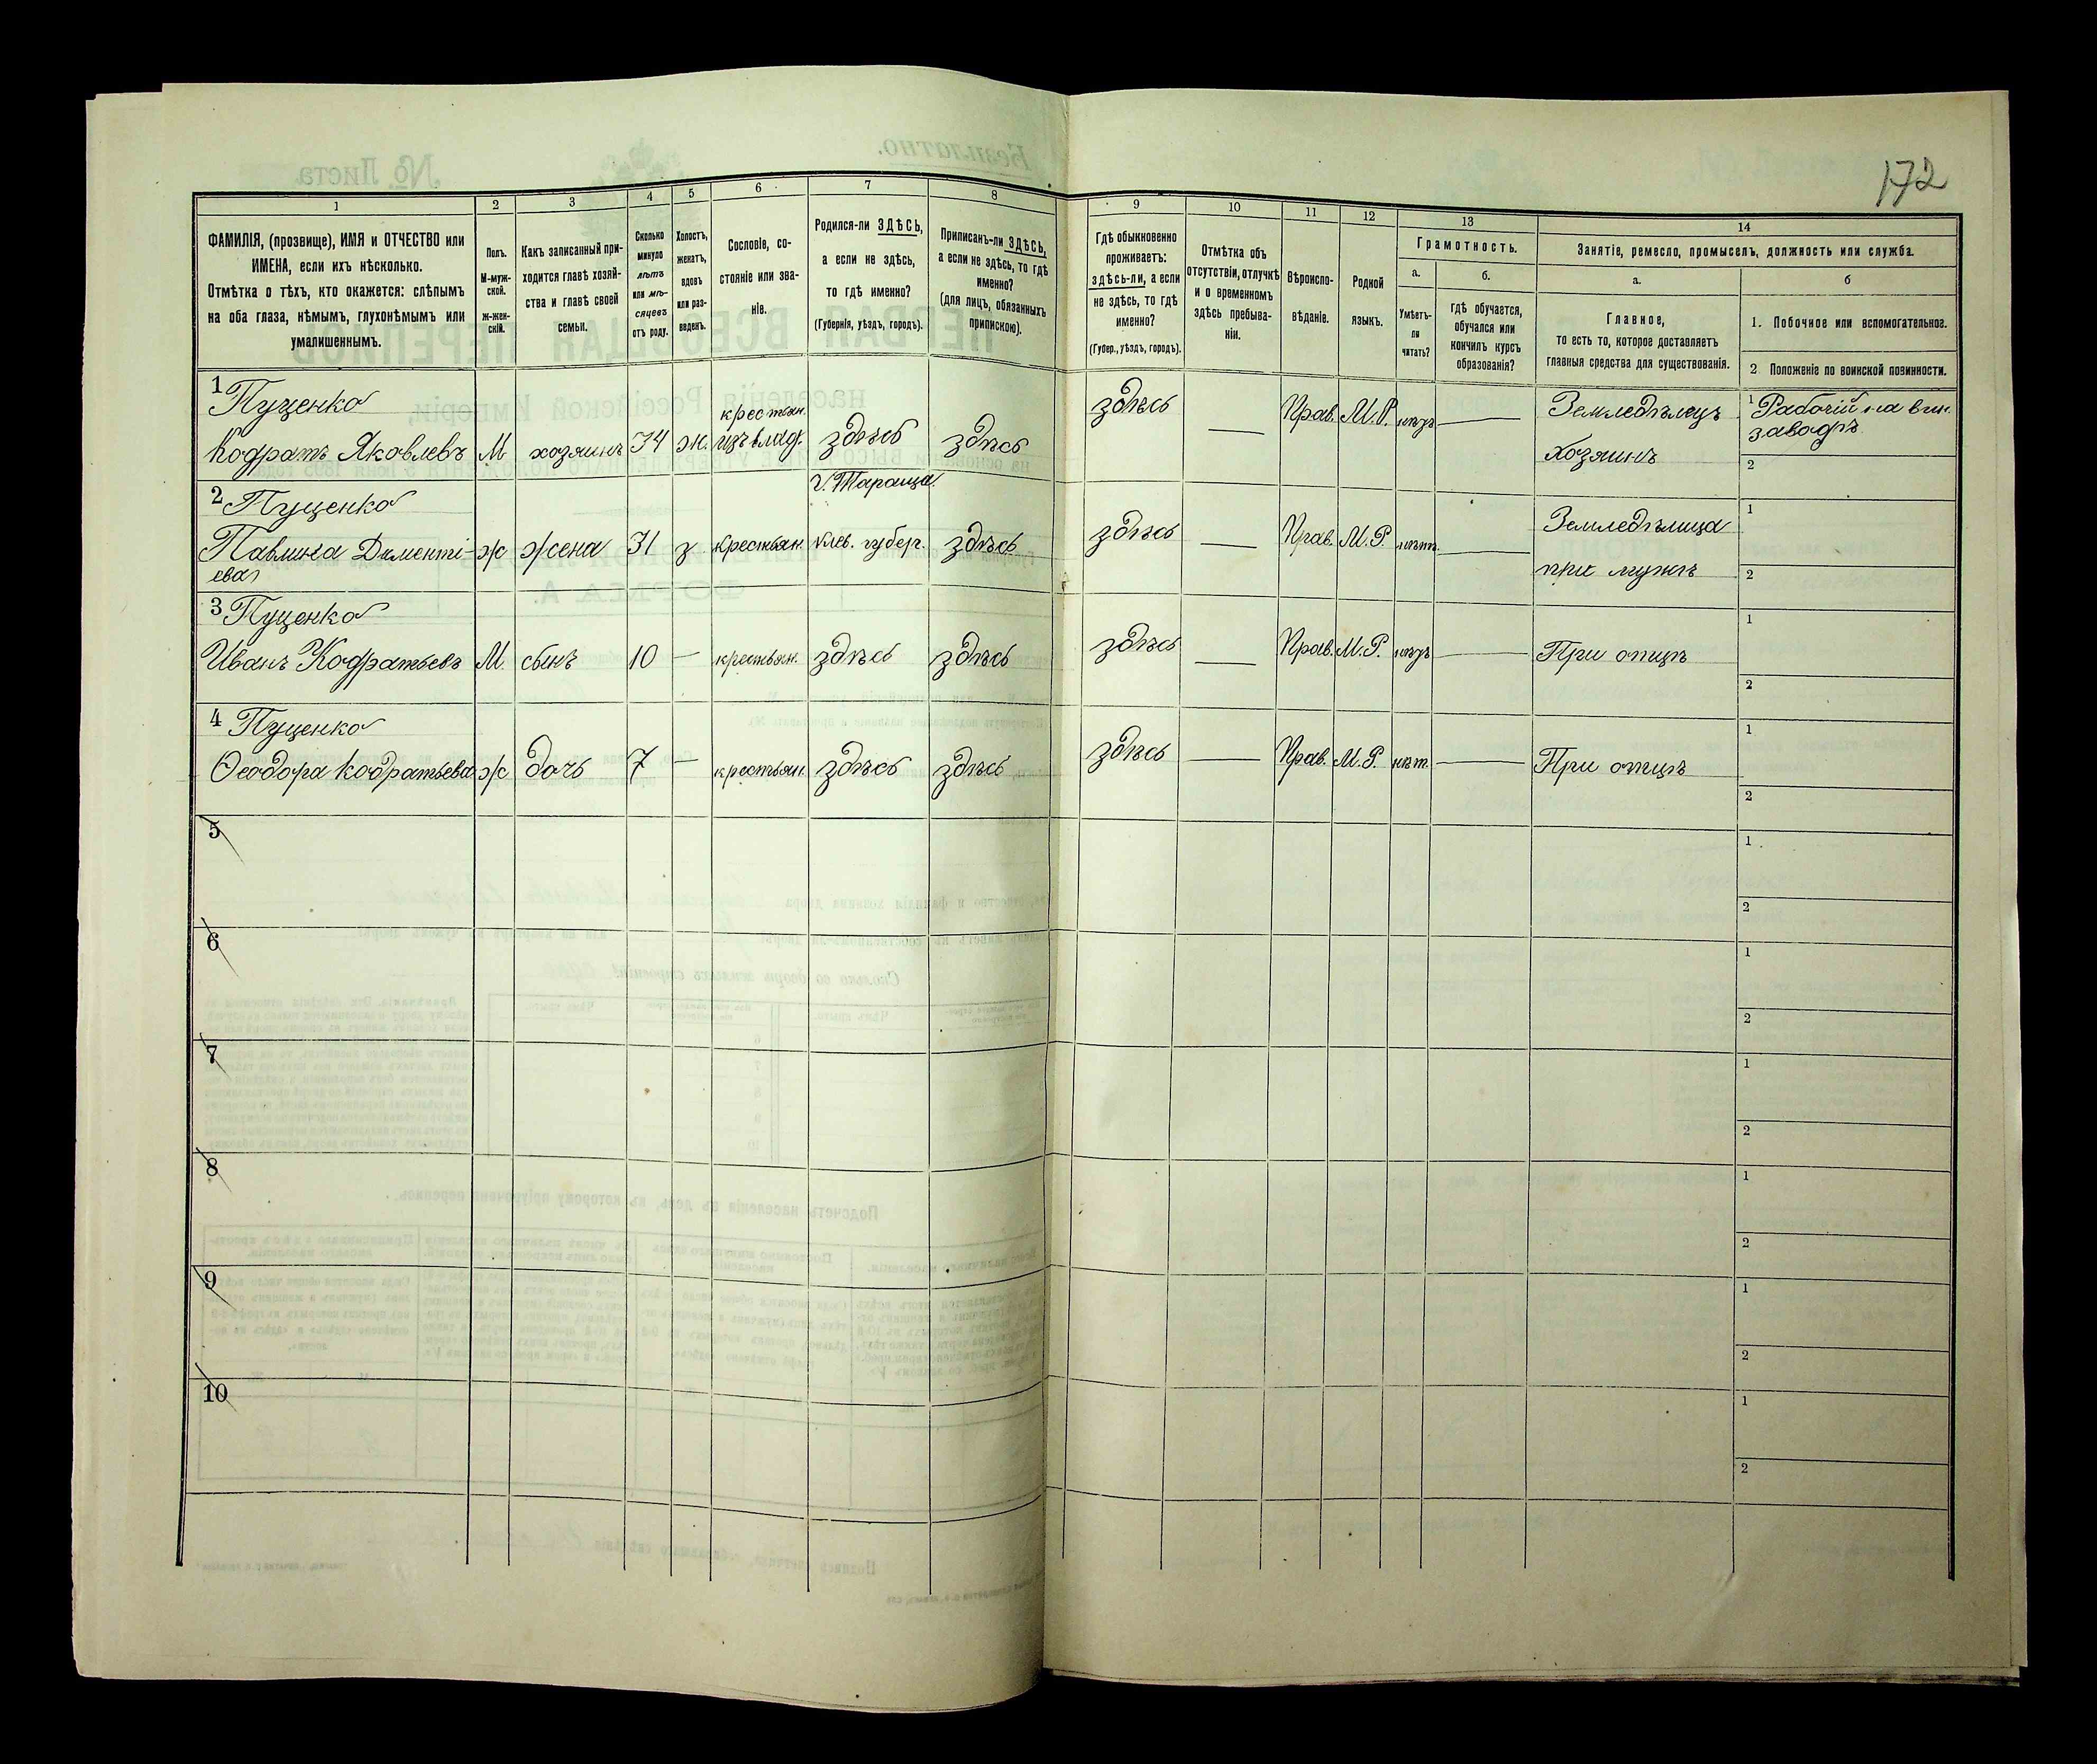 172
1
2
3
4
5
6
7
8
9
10
11
12
13
14
ФАМИЛІЯ, (прозвище), ИМЯ и ОТЧЕСТВО или
ИМЕНА, если ихъ нѣсколько.
Отмѣтка о тѣхъ, кто окажется: слѣпымъ
на оба глаза, нѣмымъ, глухонѣмымъ или
умалишеннымъ.
Полъ.
М-муж-
ской.
ж-жен-
скій.
Какъ записанный при-
ходится главѣ хозяй-
ства и главѣ своей
семьи.
Сколько
минуло
лѣтъ
или мѣ-
сяцевъ
отъ роду.
Холостъ,
женатъ,
вдовъ
или раз-
веденъ.
Сословіе, со-
стояніе или зва-
ніе.
Родился-ли ЗДѢСЬ,
а если не здѣсь,
то гдѣ именно?
(Губернія, уѣздъ, городъ).
Приписанъ-ли ЗДѢСЬ,
а если не здѣсь, то гдѣ
именно?
(для лицъ, обязанныхъ
припискою).
Гдѣ обыкновенно
проживаетъ:
здѣсь-ли, а если
не здѣсь, то гдѣ
именно?
(Губер., уѣздъ, городъ).
Отмѣтка объ
отсутствіи, отлучкѣ
и о временномъ
здѣсь пребыва-
ніи.
Вѣроиспо-
вѣданіе.
Родной
языкъ.
Грамотность.
а.
Умѣетъ-
ли
читать?
б.
гдѣ обучается,
обучался или
кончилъ курсъ
образованія?
Занятіе, ремесло, промыселъ, должность или служба.
а.
Главное,
то есть то, которое доставляетъ
главныя средства для существованія.
б
1. Побочное или вспомогательное.
2 Положеніе по воинской повинности.
1 Пуценко
Кодратъ Яковлевъ М хозяинъ 34 ж. крестьян. изъ влад. здѣсь здѣсь здѣсь — Прав. М.Р. — Земледѣлецъ
Хозяинъ
1 Рабочій на вин.
заводѣ
2
2 Пуценко
Павлина Дементі-
ева ж жена 31 з крестьян. г. Тараща
Кіев. губер. здѣсь здѣсь — Прав. М.Р. нѣтъ — Земледѣлица
при мужѣ
1
2
3 Пуценко
Иванъ Кодратьевъ М сынъ 10 — крестьян. здѣсь здѣсь здѣсь — Прав. М.Р. — При отцѣ
1
2
4 Пуценко
Ѳеодора Кодратьева ж дочь 7 — крестьян. здѣсь здѣсь здѣсь — Прав. М.Р. нѣт. — При отцѣ
1
2
5
1
2
6
1
2
7
1
2
8
1
2
9
1
2
10
1
2